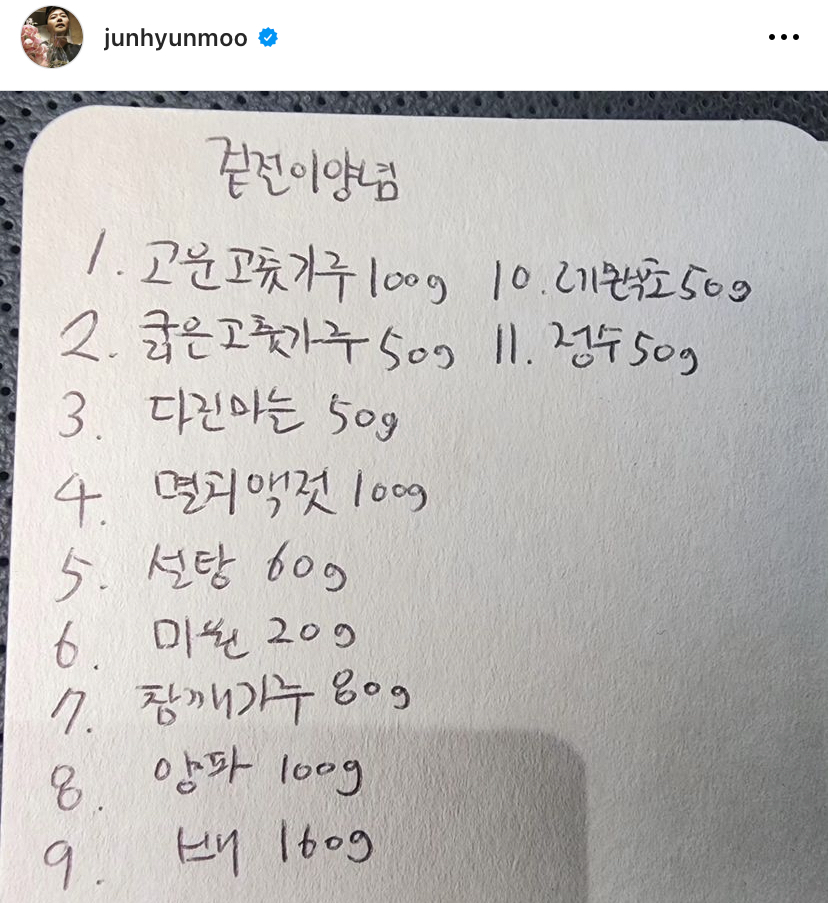 junhyunmoo
겉절이양념
1. 고운고춧가루 100g
2. 굵은고춧가루 50g
3. 다진마늘 50g
4. 멸치액젓 100g
5. 설탕 60g
6. 미원 20g
7. 참깨가루 80g
8. 양파 100g
9. 배 160g
10. 50g
11. 정수 50g